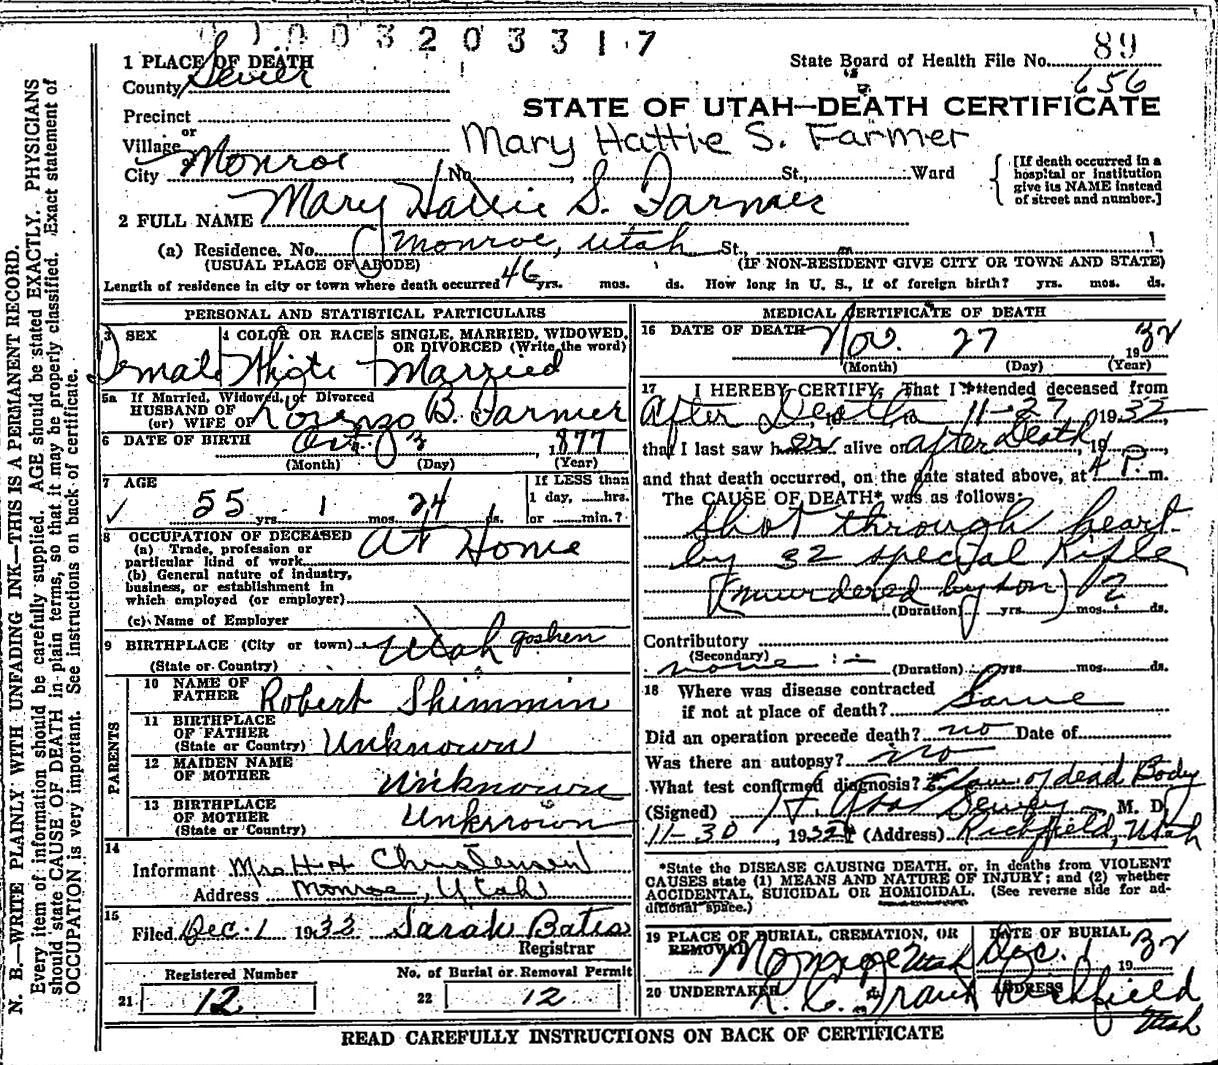 0 1 0 0 3 2 0 3 3 1 7
89
1 PLACE OF DEATH
State Board of Health File No.
County Sevier
656
Precinct
STATE OF UTAH—DEATH CERTIFICATE
or
Village
Mary Hattie S. Farmer
or
City Monroe No. , St., Ward
[If death occurred in a hospital or institution give its NAME instead of street and number.]
2 FULL NAME Mary Hattie S. Farmer
(a) Residence. No. Monroe, Utah St.,
(USUAL PLACE OF ABODE) (IF NON-RESIDENT GIVE CITY OR TOWN AND STATE)
Length of residence in city or town where death occurred 46 yrs. mos. ds. How long in U. S., if of foreign birth? yrs. mos. ds.
PERSONAL AND STATISTICAL PARTICULARS
3 SEX
Female
4 COLOR OR RACE
White
5 SINGLE, MARRIED, WIDOWED, OR DIVORCED (Write the word)
Married
5a If Married, Widowed, or Divorced
HUSBAND OF
(or) WIFE OF Lorenzo B. Farmer
6 DATE OF BIRTH Oct. 3, 1877
(Month) (Day) (Year)
7 AGE
55 yrs. 1 mos. 24 ds.
If LESS than
1 day, ......hrs.
or .......min.?
8 OCCUPATION OF DECEASED
(a) Trade, profession or particular kind of work At Home
(b) General nature of industry, business, or establishment in which employed (or employer)
(c) Name of Employer
9 BIRTHPLACE (City or town) Utah goshen
(State or Country)
PARENTS
10 NAME OF FATHER Robert Shimmin
11 BIRTHPLACE OF FATHER (State or Country) Unknown
12 MAIDEN NAME OF MOTHER Unknown
13 BIRTHPLACE OF MOTHER (State or Country) Unknown
14
Informant Mrs H H Christensen
Address Monroe, Utah
15
Filed Dec. 1 1932 Sarah Bates
Registrar
Registered Number No. of Burial or Removal Permit
21 12 22 12
MEDICAL CERTIFICATE OF DEATH
16 DATE OF DEATH Nov. 27 1932
(Month) (Day) (Year)
17 I HEREBY CERTIFY, That I attended deceased from
After Death, 19 to 11-27 1932,
that I last saw her alive on after Death, 19
and that death occurred, on the date stated above, at 4 P. m.
The CAUSE OF DEATH* was as follows:
Shot through heart
by 32 special Rifle
(murdered by son)
(Duration) yrs. mos. ds.
Contributory
(Secondary)
none (Duration) yrs. mos. ds.
18 Where was disease contracted
if not at place of death? Same
Did an operation precede death? no Date of
Was there an autopsy? no
What test confirmed diagnosis? Exam. of dead Body
(Signed) Dewey M. D.
11-30, 1932 (Address) Richfield, Utah
*State the DISEASE CAUSING DEATH, or, in deaths from VIOLENT CAUSES state (1) MEANS AND NATURE OF INJURY; and (2) whether ACCIDENTAL, SUICIDAL OR HOMICIDAL. (See reverse side for additional space.)
19 PLACE OF BURIAL, CREMATION, OR REMOVAL
Monroe Utah
DATE OF BURIAL
Dec. 1 1932
20 UNDERTAKER
ADDRESS
Richfield
Utah
READ CAREFULLY INSTRUCTIONS ON BACK OF CERTIFICATE
N. B.—WRITE PLAINLY WITH UNFADING INK—THIS IS A PERMANENT RECORD.
Every item of information should be carefully supplied. AGE should be stated EXACTLY. PHYSICIANS
should state CAUSE OF DEATH in plain terms, so that it may be properly classified. Exact statement of
OCCUPATION is very important. See instructions on back of certificate.